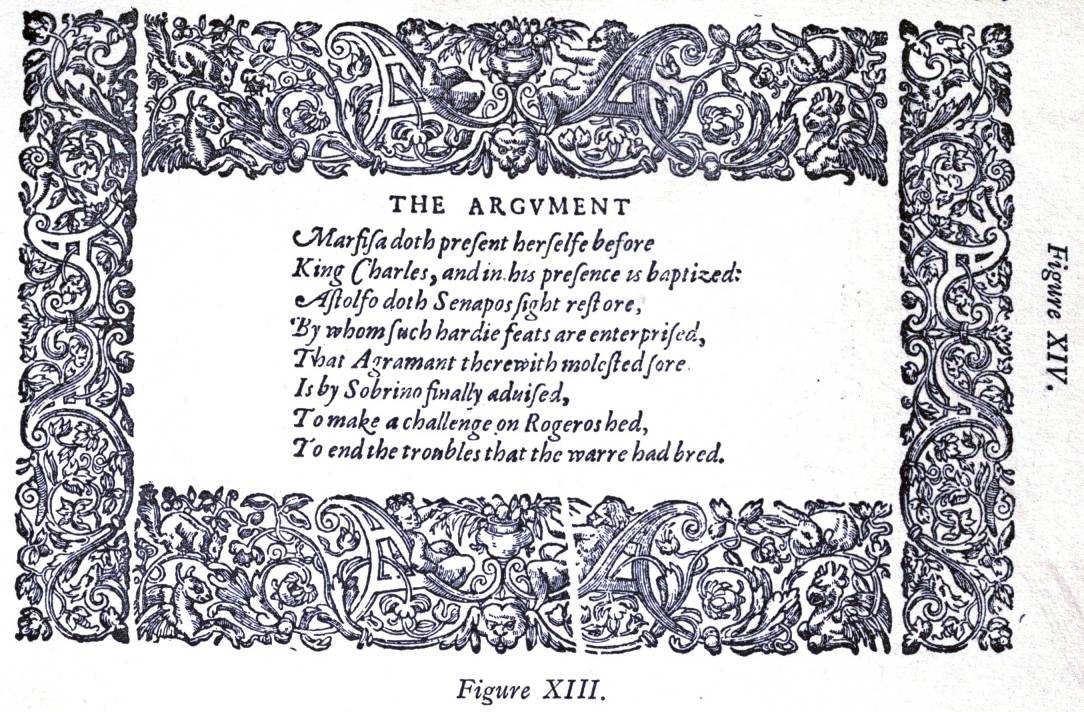 THE ARGVMENT
Marfiſa doth preſent herſelfe before
King Charles, and in his preſence is baptized:
Aſtolfo doth Senapos ſight reſtore,
By whom ſuch hardie feats are enterpriſed,
That Agramant therewith moleſted ſore
Is by Sobrino finally aduiſed,
To make a challenge on Rogeros hed,
To end the troubles that the warre had bred.
Figure XIII.
Figure XIV.